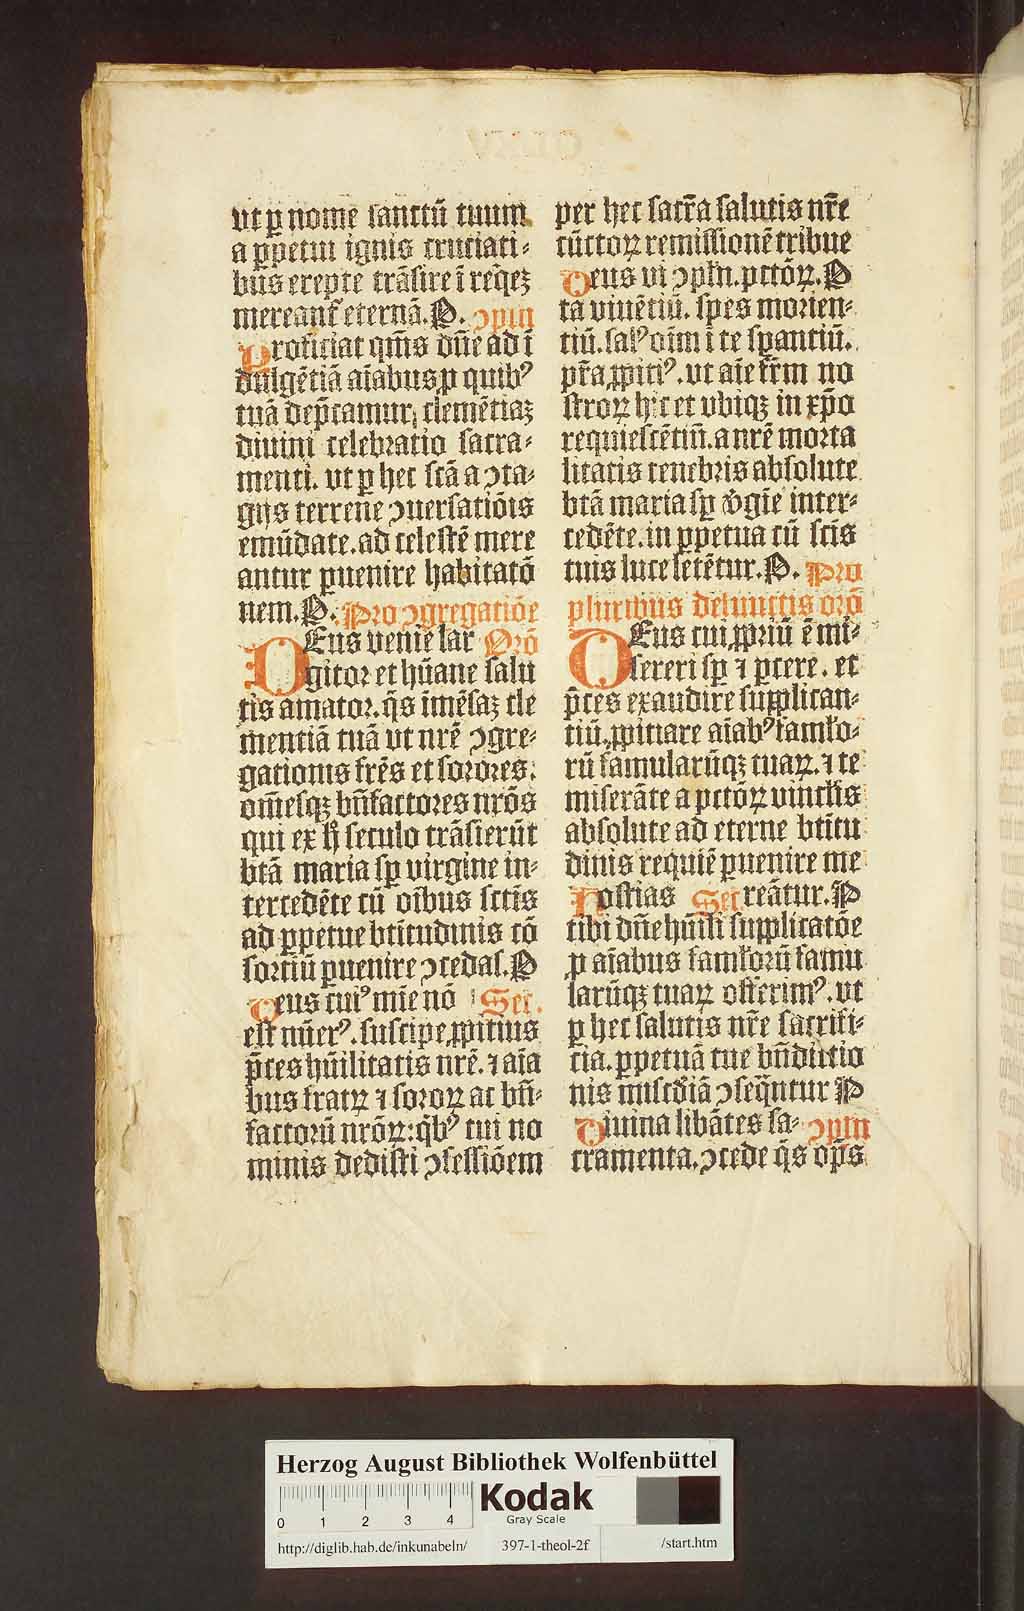 vt ꝑ nomē sanctū tuum
a ꝑpetui ignis cruciati⸗
bus erepte trāsire ī reqͥeꝫ
mereant᷑ eternā.P. ↄpln
Proficiat qm̄s dn̄e ad ī
dulgētiā aīabus ꝓ quibꝰ
tuā dep̄camur, clemētiaꝫ
diuini celebratio sacra⸗
menti. vt ꝑ hec scā a ↄta⸗
gijs terrene ↄuersatiōis
emūdate. ad celestē mere
antur ꝑuenire habitatō
nem.P. Pro ↄgregatiōe
DEus venie lar Orō
gitor et hūane salu
tis amator. q̄s imēsaꝫ cle
mentiā tuā vt nrē ↄgre⸗
gationis frēs et sorores.
om̄esqꝫ bn̄factores nrōs
qui ex hͦ seculo trāsierūt
btā maria sꝑ virgine in⸗
tercedēte cū oībus sctis
ad ꝑpetue btitudinis cō
sortiū ꝑuenire ↄcedas.P
Deus cuiꝰ mīe nō Sec.
est nūerꝰ. suscipe ꝓpitius
p̄ces hūilitatis nrē. ⁊ aīa
bus fratꝝ ⁊ soroꝝ ac bn̄⸗
factorū nrōꝝ: qͥbꝰ tui no
minis dedisti ↄfessiōem
per hec sacr̄a salutis nrē
cūctoꝝ remissionē tribue
Deus vi ↄpln. pctōꝝ.P
ta viuētiū. spes morien⸗
tiū. salꝰ oīm ī te sꝑantiū.
p̄ta ꝓpitiꝰ. vt aīe fr̄m no
stroꝝ hic et vbiqꝫ in xp̄o
requiescētiū. a nrē morta
litatis tenebris absolute
btā maria sꝑ v̄gīe inter⸗
cedēte. in ꝑpetua cū scīs
tuis luce letētur.P. Pro
pluribus defunctis orō
DEus cui ꝓpriū ē mi⸗
sereri sꝑ ⁊ ꝑcere. et
p̄ces exaudire supplican⸗
tiū. ꝓpitiare aīabꝰ famlo⸗
rū famularūqꝫ tuaꝝ. ⁊ te
miserāte a pctōꝝ vinclis
absolute ad eterne btitu
dinis requiē ꝑuenire me
Hostias Sec reātur.P
tibi dn̄e hūili supplicatōe
ꝓ aīabus famlorū famu
larūqꝫ tuaꝝ offerimꝰ. vt
ꝑ hec salutis nrē sacrifi⸗
cia. ꝑpetuā tue bn̄dictio
nis miscd̄iā ↄseqͣntur P
Diuina libātes sa⸗ ↄpln
cramenta. ↄcede q̄s op̄s
Herzog August Bibliothek Wolfenbüttel
0 1 2 3 4
Kodak
Gray Scale
http://diglib.hab.de/inkunabeln/ 397-1-theol-2f /start.htm